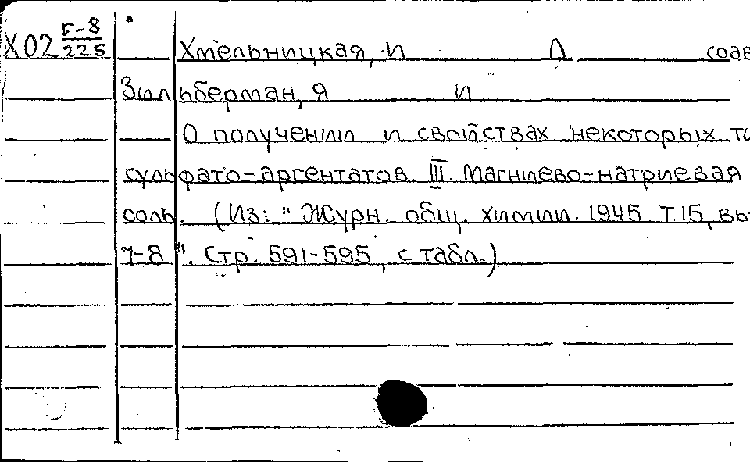 X02 F-8/225 Хмельницкая, И Л соав
Зильберман, Я И
О получении и свойствах некоторых
сульфато-аргентатов III. Магниево-натриевая
соль. (Из: "Журн. общ. химии. 1945 т.15, вы
7-8". Стр. 591-595, с табл.)